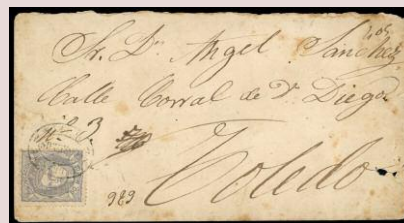 Sr. Dn Angel Sanchez
Calle Corral de Dn Diego
nº 3
Toledo
989